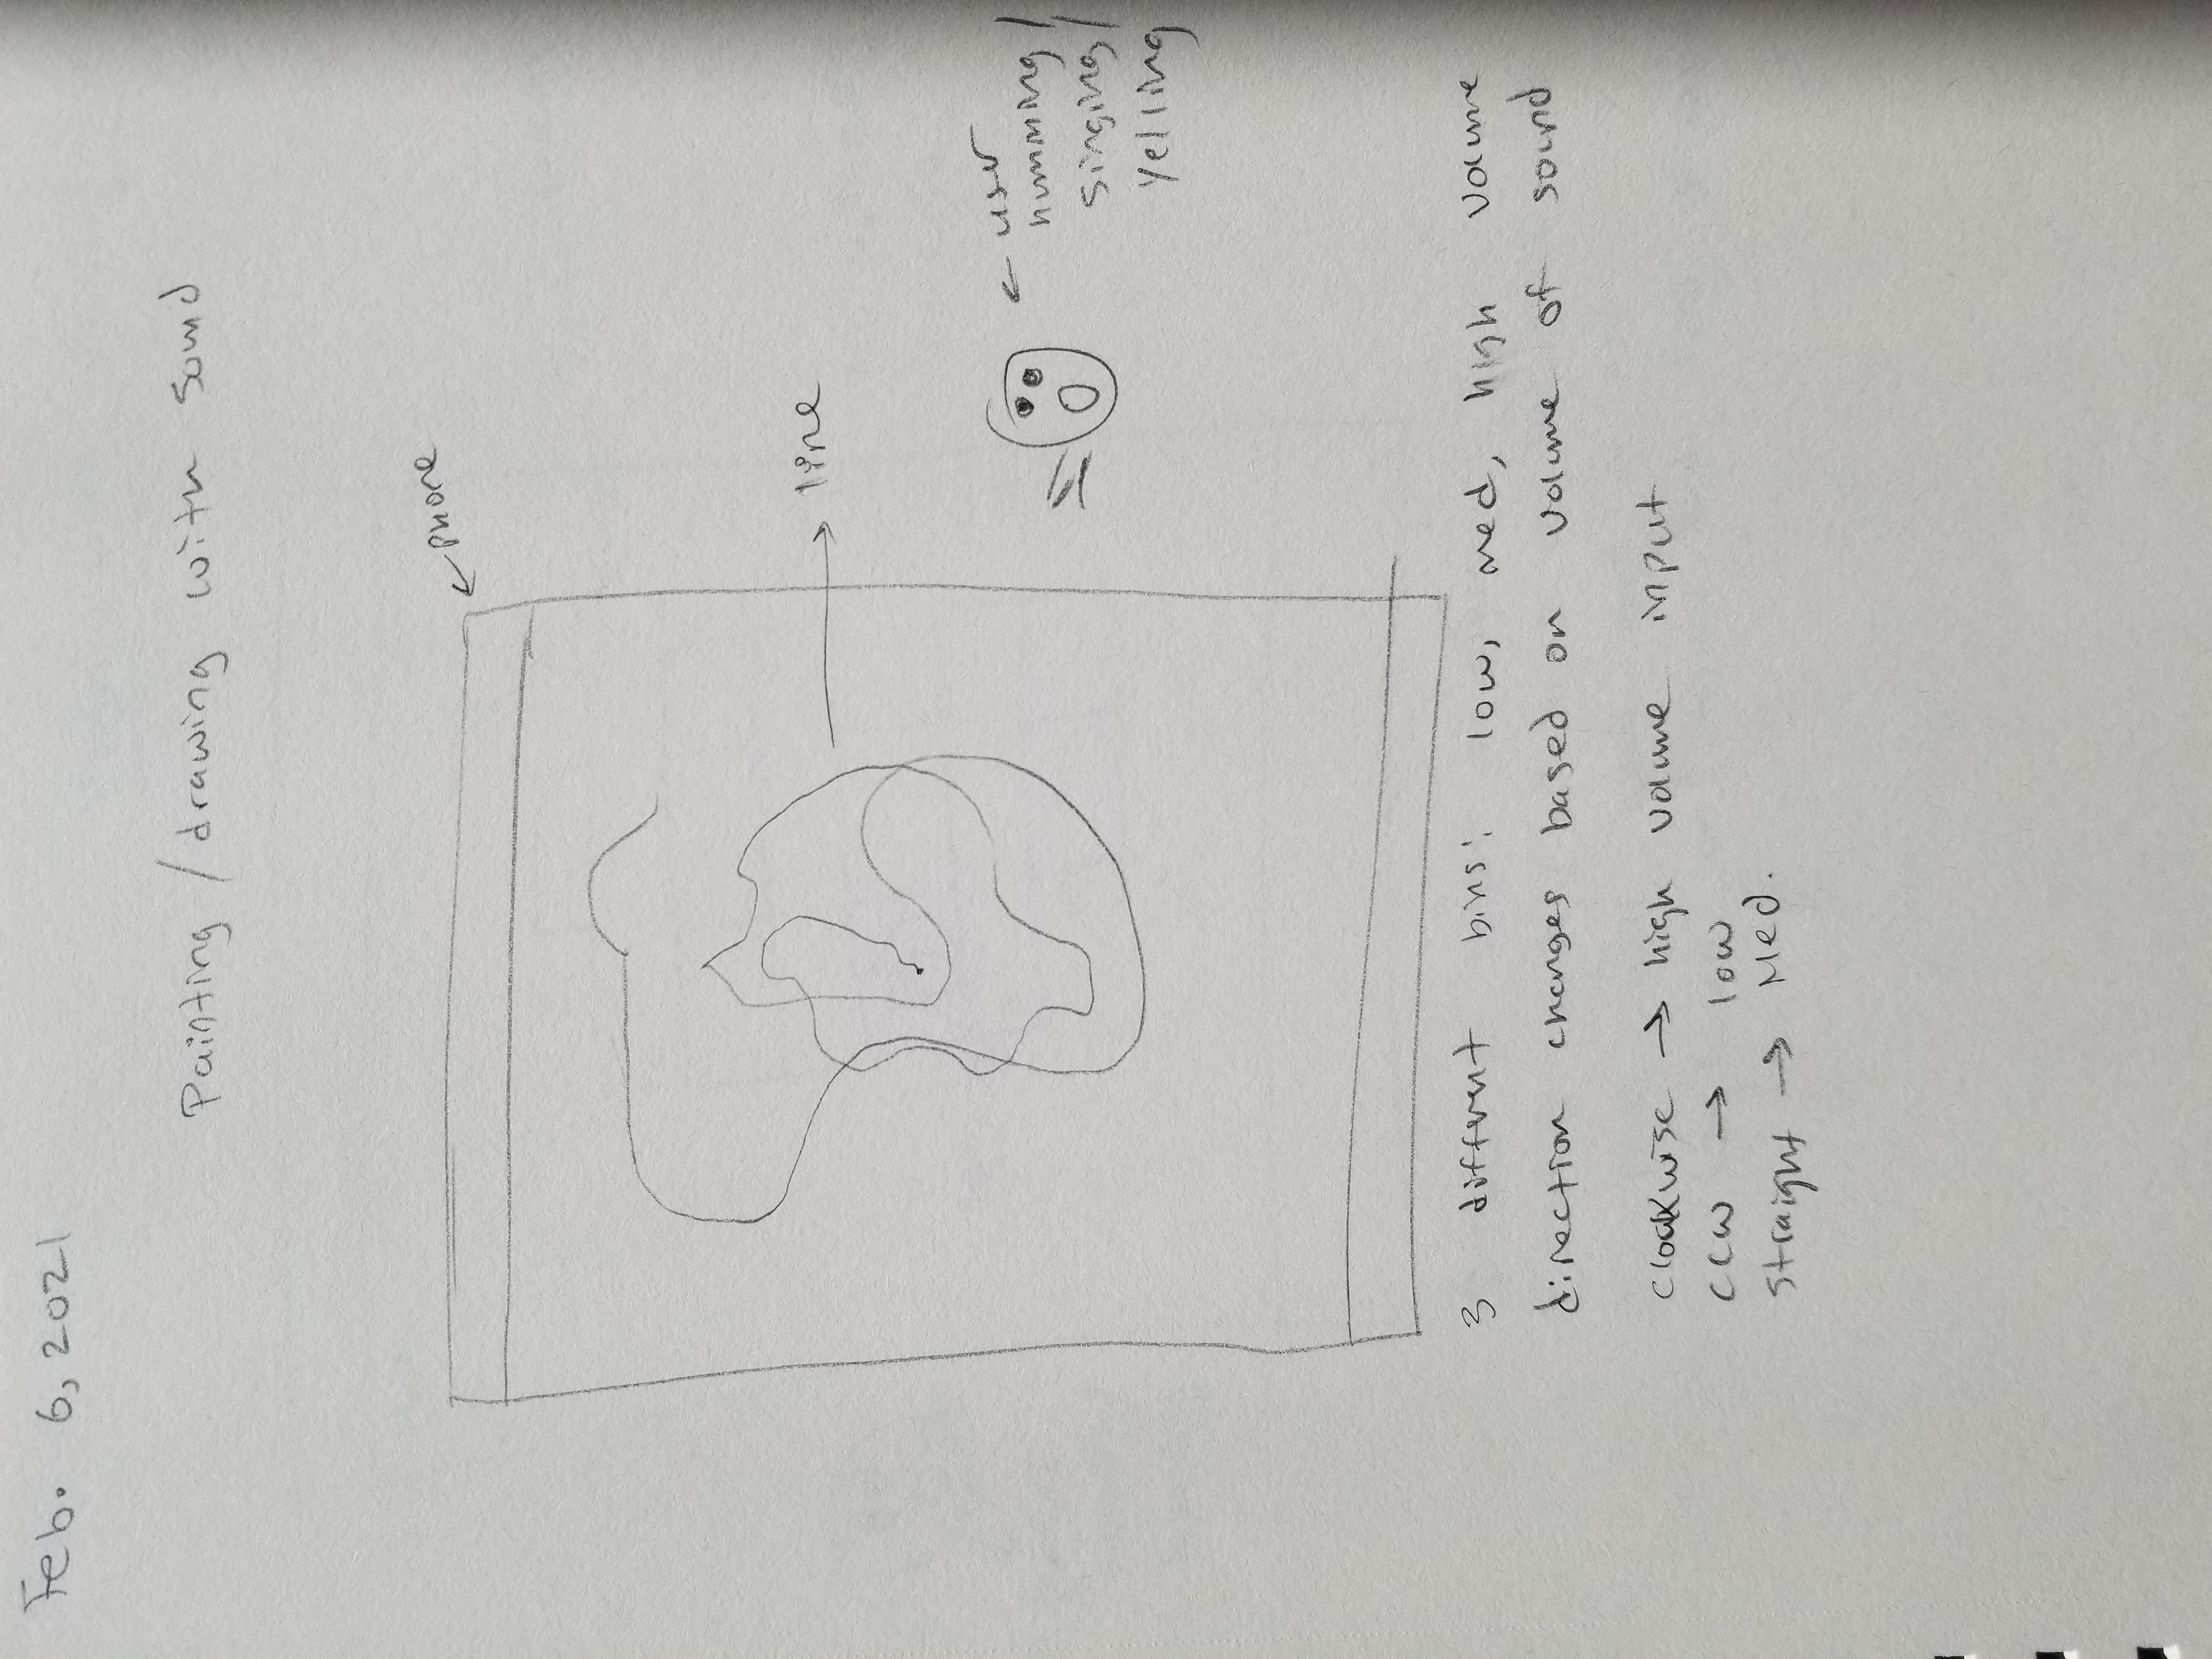 Feb. 6, 2021
Painting / drawing with sound
phone
line
user
humming/
singing/
yelling
3 different bins: low, med, high volume
direction changes based on volume of sound
clockwise → high volume input
ccw → low
straight → Med.